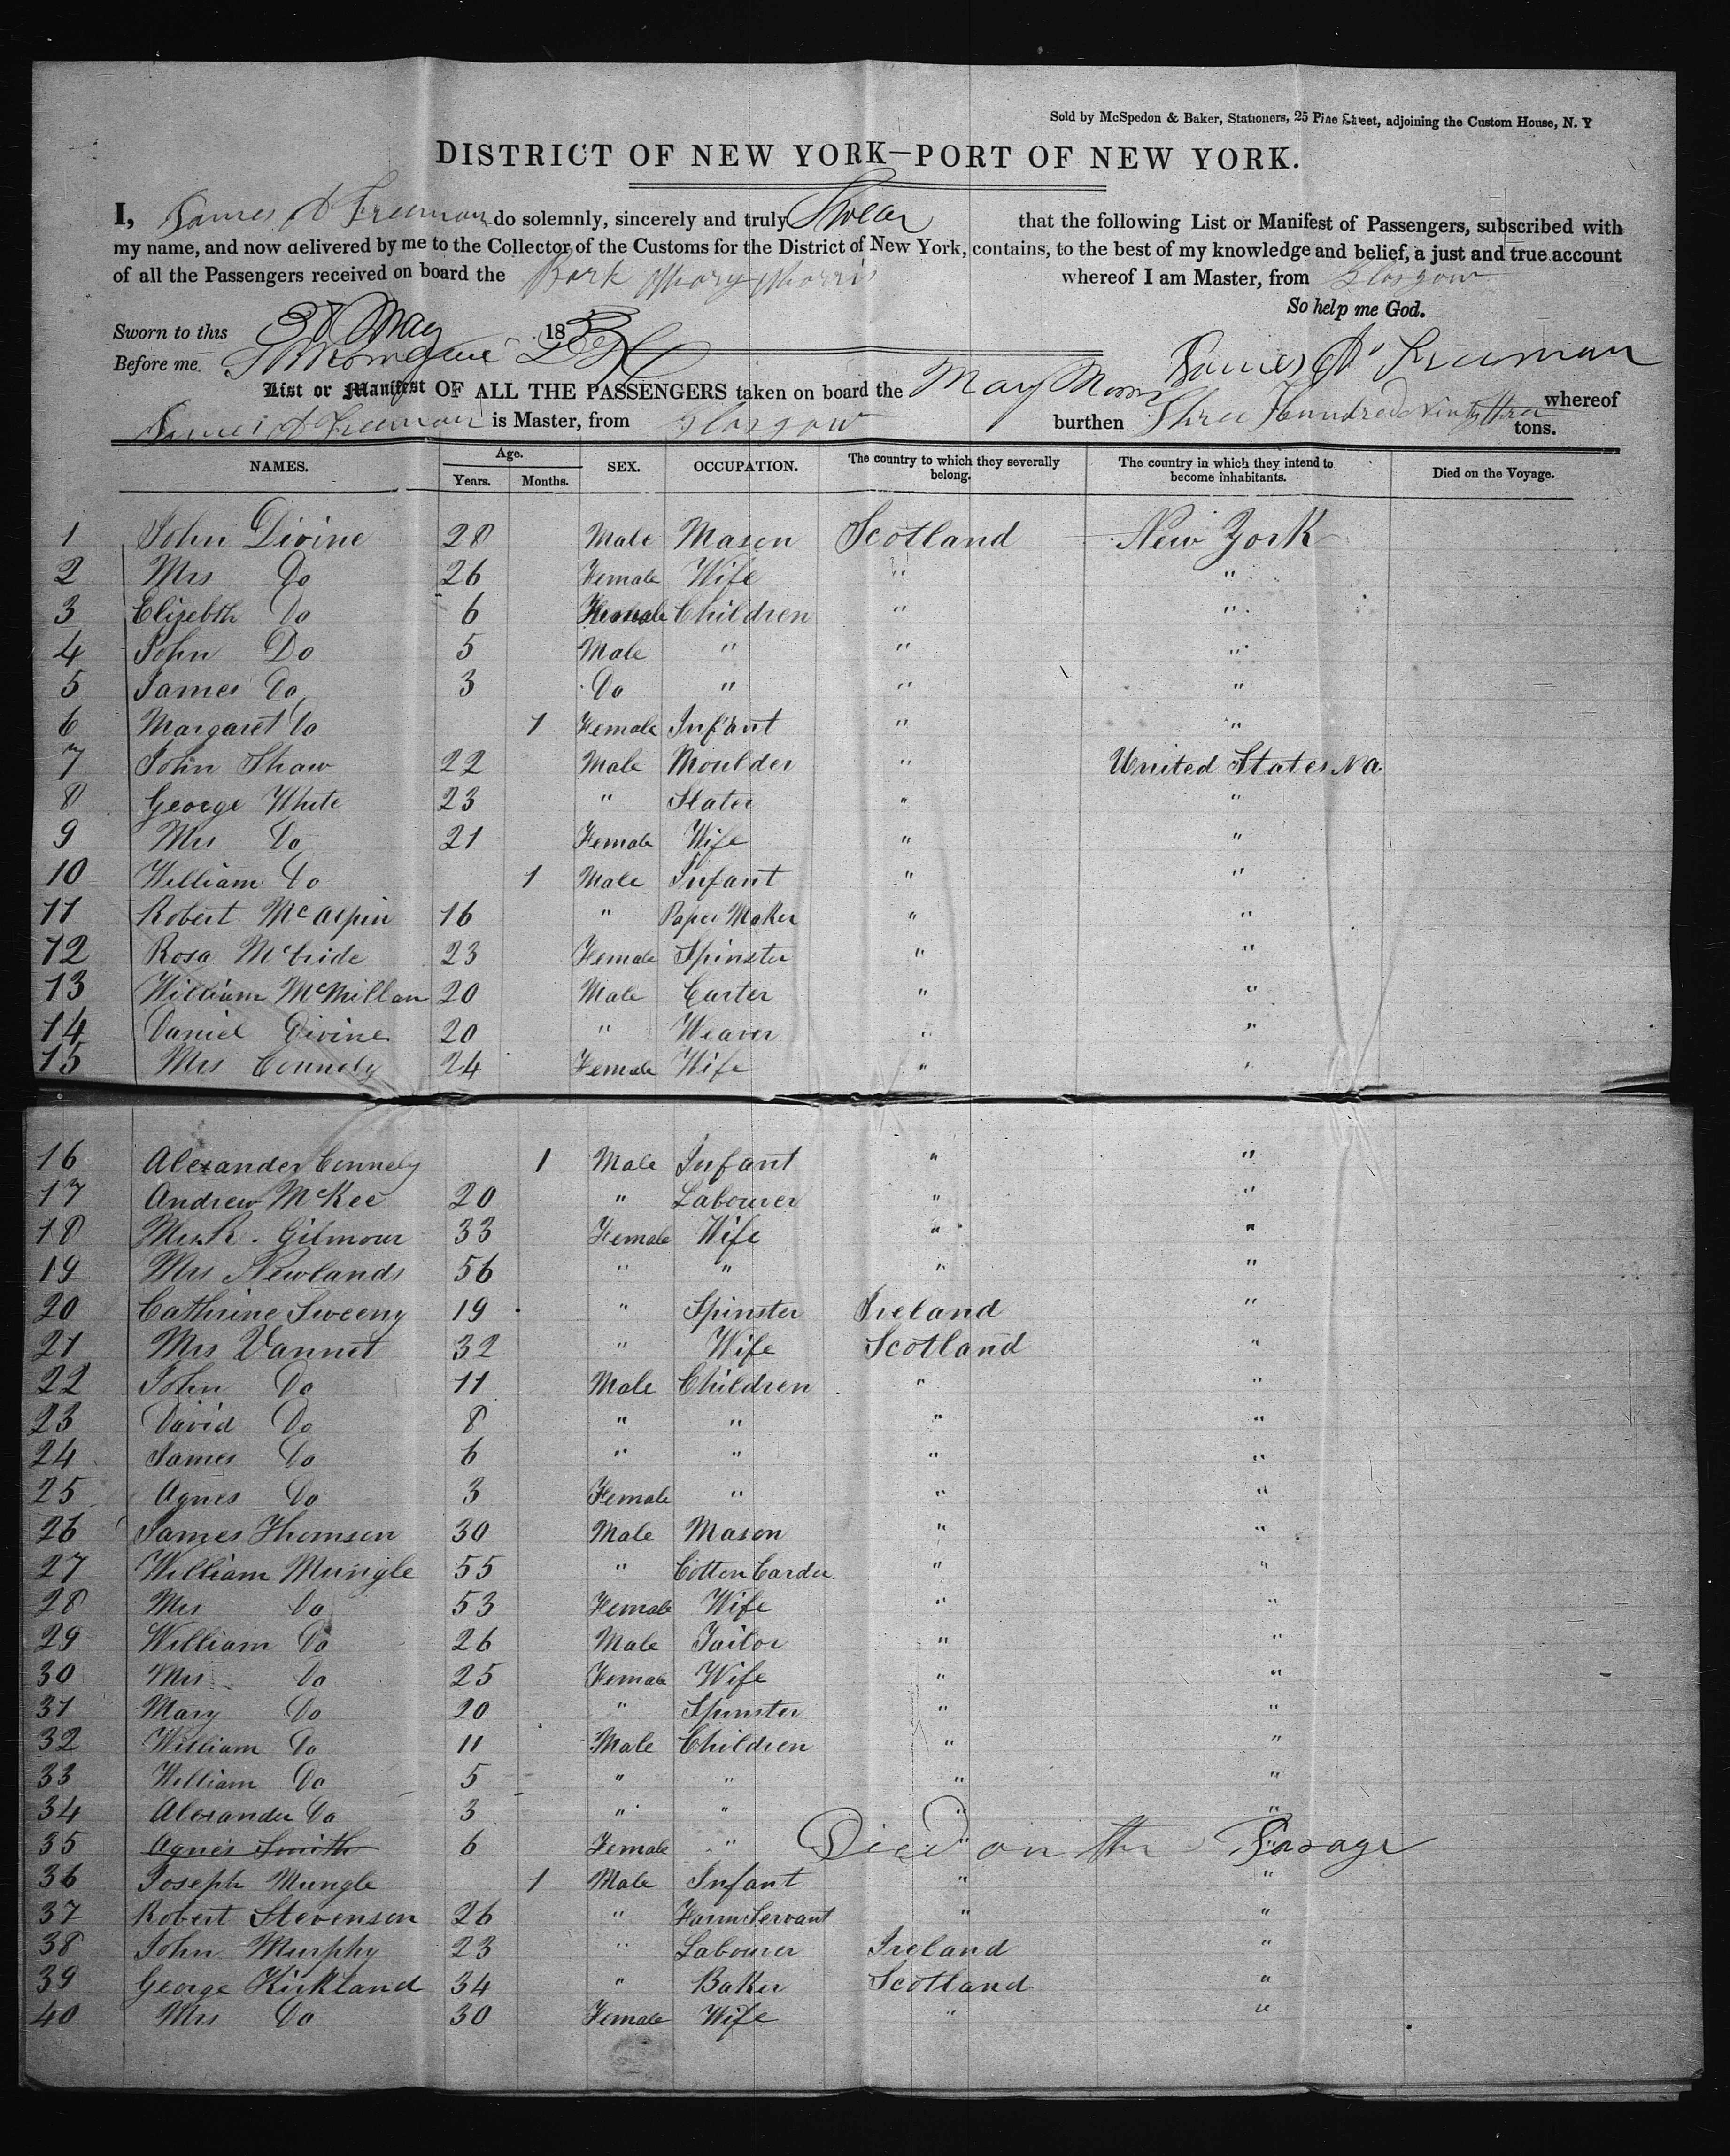 Sold by McSpedon & Baker, Stationers, 25 Pine Street, adjoining the Custom House, N. Y
DISTRICT OF NEW YORK—PORT OF NEW YORK.
I, James A Freeman do solemnly, sincerely and truly Swear that the following List or Manifest of Passengers, subscribed with
my name, and now delivered by me to the Collector of the Customs for the District of New York, contains, to the best of my knowledge and belief, a just and true account
of all the Passengers received on board the Bark Mary Morris whereof I am Master, from Glasgow
So help me God.
Sworn to this May 1853
Before me James A Freeman
List or Manifest OF ALL THE PASSENGERS taken on board the Mary Morris whereof
James A Freeman is Master, from Glasgow burthen Three Hundred Ninty three tons.
NAMES. Age. Years. Months. SEX. OCCUPATION. The country to which they severally belong. The country in which they intend to become inhabitants. Died on the Voyage.
1 John Divine 28 Male Mason Scotland New York
2 Mrs Do 26 Female Wife " "
3 Elizebth Do 6 Female Children " "
4 John Do 5 Male " " "
5 James Do 3 Do " " "
6 Margaret Do 1 Female Infant " "
7 John Shaw 22 Male Moulder " United States N a.
8 George White 23 " Slater " "
9 Mrs Do 21 Female Wife " "
10 William Do 1 Male Infant " "
11 Robert McAlpin 16 " Paper Maker " "
12 Rosa McBride 23 Female Spinster " "
13 William McMillan 20 Male Carter " "
14 Daniel Divine 20 " Weaver " "
15 Mrs Connely 24 Female Wife " "
16 Alexander Connely 1 Male Infant " "
17 Andrew McKee 20 " Labourer " "
18 Mrs R. Gilmour 33 Female Wife " "
19 Mrs Newlands 56 " " " "
20 Cathrine Sweeny 19 " Spinster Ireland "
21 Mrs Vannet 32 " Wife Scotland "
22 John Do 11 Male Children " "
23 David Do 8 " " " "
24 James Do 6 " " " "
25 Agnes Do 3 Female " " "
26 James Thomson 30 Male Mason " "
27 William Mungle 55 " Cotton Carder " "
28 Mrs Do 53 Female Wife " "
29 William Do 26 Male Tailor " "
30 Mrs Do 25 Female Wife " "
31 Mary Do 20 " Spinster " "
32 William Do 11 Male Children " "
33 William Do 5 " " " "
34 Alexander Do 3 " " " "
35 Agnes Smith 6 Female " " Died on the Pasage "
36 Joseph Mungle 1 Male Infant " "
37 Robert Stevenson 26 " Farm Servant " "
38 John Murphy 23 " Labourer Ireland "
39 George Kirkland 34 " Baker Scotland "
40 Mrs Do 30 Female Wife " "